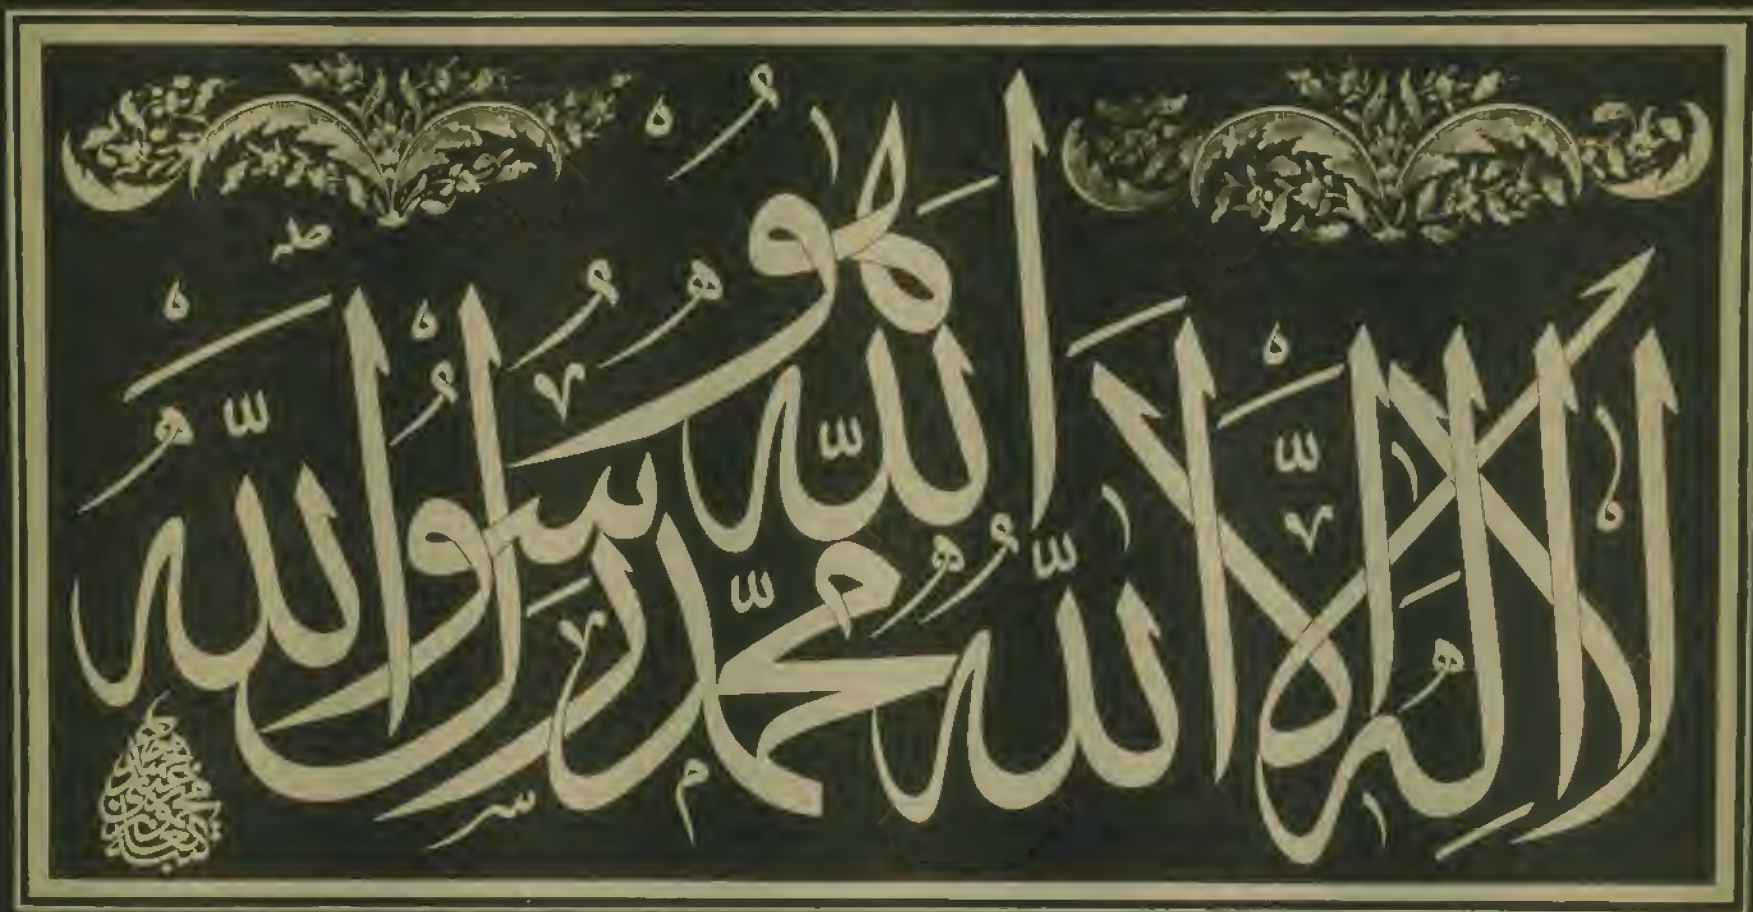 لَا إِلٰهَ إِلَّا اللّٰهُ هُوَ اللّٰهُ مُحَمَّدٌ رَسُولُ اللّٰهِ